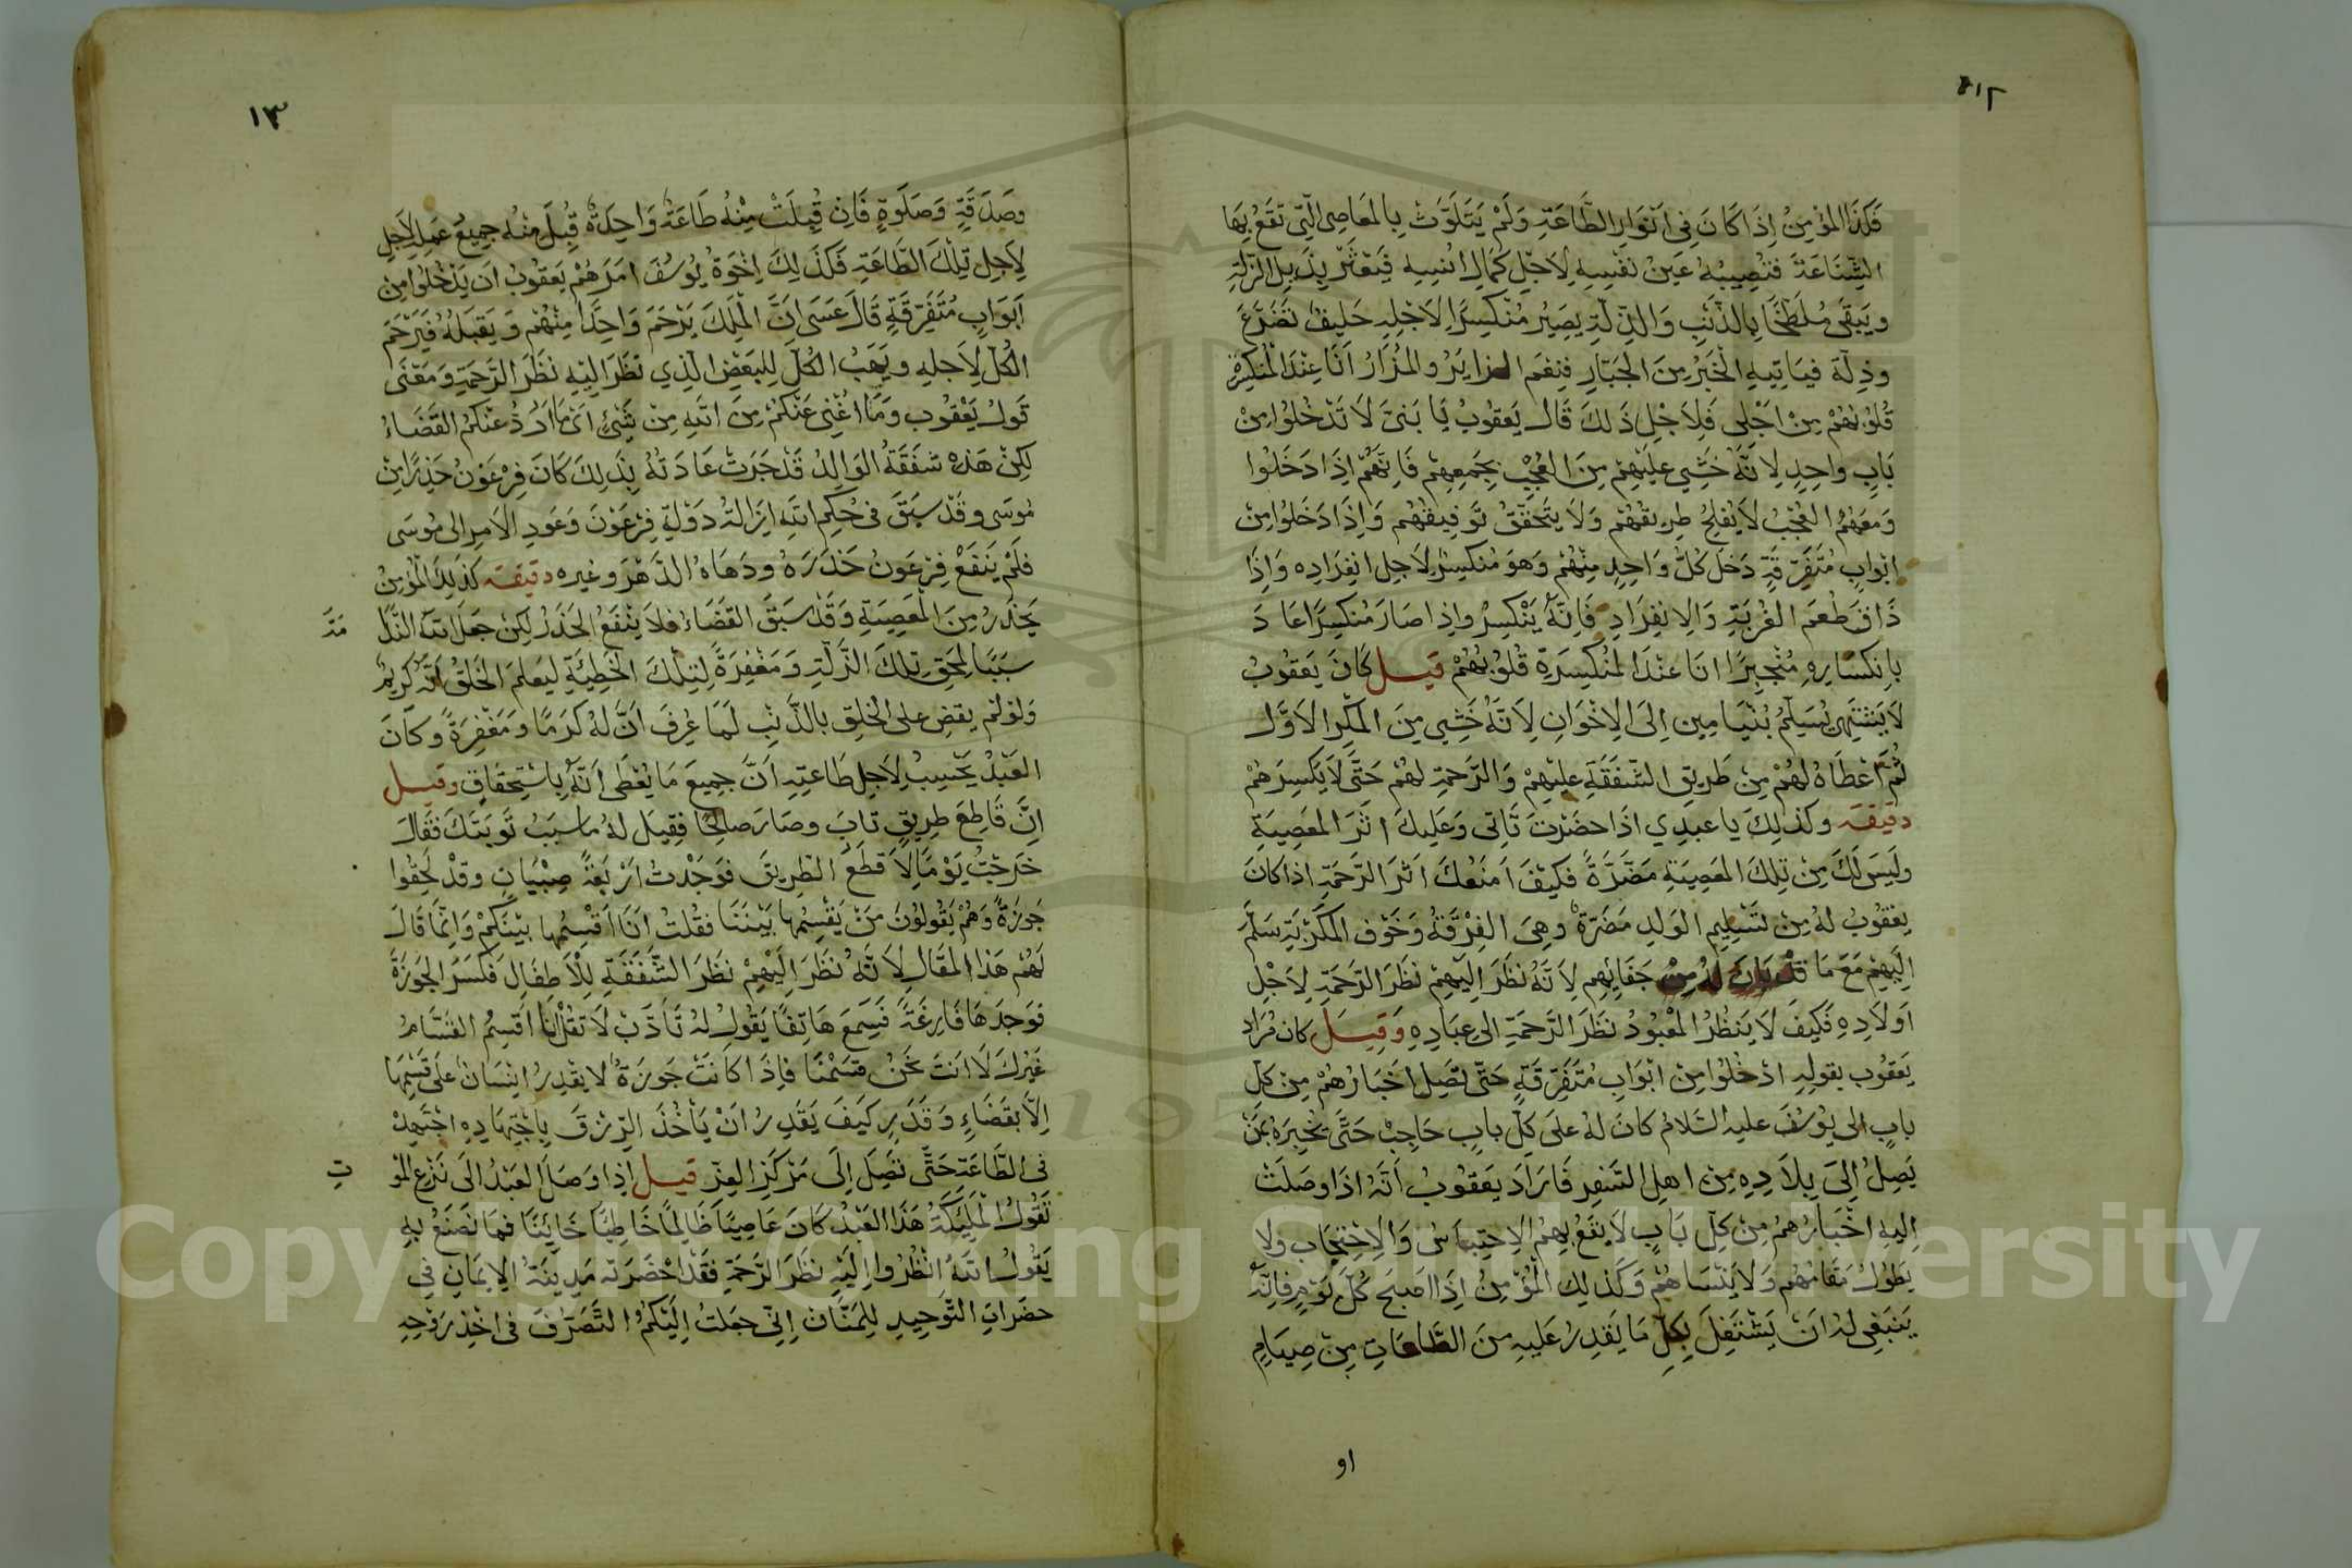 ١٢
فَكَذَا المؤمِنُ اِذَا كَانَ فِى اَنْوَارِ الطَّاعَةِ وَلَمْ يَتَلَوَّثْ بِالمَعَاصِى الَّتِى تَقَعُ بِهَا
الشَّنَاعَةُ فَتُصِيبُهُ عَيْنُ نَفْسِهِ لِاَجْلِ كَمَالِ اُنْسِهِ فَيَعْثَرُ بِذَيلِ الزَّلَّةِ
وَيَبْقَى مُلَطَّخًا بِالذَّنْبِ وَالذِّلَّةِ يَصِيْرُ مُنْكَسِرًا لِاَجْلِهِ حَلِيفُ تَضَرُّعٍ
وَذِلَّةٍ فَيَاتِيهِ الْخَبَرُ مِنَ الجَبَّارِ فَنِعْمَ الزايِرُ والمُزَارُ اَنَا عِنْدَ المُنْكَسِرَةِ
قُلُوْبُهُمْ مِنْ اَجْلِى فَلِاَجْلِ ذَلكَ قَالَ يَعقُوبُ يَا بَنِىَّ لَا تَدْخُلُوا مِنْ
بَابٍ وَاحِدٍ لِاَنَّهُ خَشِىَ عَلَيْهِمْ مِنَ العُجْبِ بِجَمْعِهِمْ فَاِنَّهُمْ اِذَا دَخَلُوا
وَمَعَهُمُ العُجْبُ لَا يُفْلِحُ طَرِيقُهُمْ وَلَا يَتَحَقَّقُ تَوفِيقُهُم وَاِذَا دَخَلُوا مِنْ
ابْوَابٍ مُتَفَرِّقَةٍ دَخَلَ كُلُّ وَاحِدٍ مِنْهُمْ وَهوَ مُنْكَسِرٌ لِاَجلِ انفِرَادِه وَاِذَا
ذَاقَ طَعْمَ الغُربَةِ وَالاِنفِرَادِ فَاِنَّهُ يَنْكَسِرُ واِذا صَارَ مُنكَسِرًا عَادَ
بِانكِسَارِهِ مُنْجَبِرًا انَا عِنْدَ المُنْكَسِرَةِ قُلُوْبُهُمْ قيل كَانَ يَعقُوبُ
لَا يَشْتَهِى يُسَلِّمُ بُنْيَامِين اِلَى الاِخْوَانِ لِاَنَّهُ خَشِىَ مِنَ المَكْرِ الاَوَّلِ
ثُمَّ اَعْطَاهُ لَهُمْ مِنْ طَرِيقِ الشَّفَقَةِ علَيْهِمْ وَالرَّحمَةِ لهُمْ حَتَّى لَا يَكْسِرَهُمْ
دقيقه وكَذَلِكَ يا عبدِي اذَا حضَرْتَ تَاتى وَعَلَيكَ اثَرُ المَعصِيَةِ
ولَيْسَ لَكَ مِنْ تِلكَ المَعصِيَةِ مَضَرَّةٌ فَكَيْفَ اَمنَعُكَ اَثَرَ الرَّحَمَةِ اذا كانَ
يعقُوبُ لهُ مِنْ تَسْلِيمِ الوَلَدِ مَضَرّةٌ وهِىَ الفِرْقَةُ وَخَوْف المَكْرِ سَلَّمَ
اِلَيْهِمْ مَعَ مَا قَدْ بَانَ لهُ مِنْ جَفَائِهِم لِاَنَّهُ نَظَرَ اِلَيْهِمْ نَظَرَ الرَّحمَةِ لِاَجْلِ
اَولَادِهِ فَكَيفَ لَا يَنظُرُ المَعْبُودُ نظَرَ الرَّحمَةِ الى عِبَادِهِ وَقيلَ كان مُرَاد
يَعقُوب بقولِهِ ادْخُلُوا مِنْ ابْوَابٍ مُتَفَرِّقَةٍ حَتَّى تَصِلَ اخبَارُهُمْ مِنْ كلِّ
بابٍ الى يُوْسُفَ عليه السَّلامُ كانَ لهُ على كلِّ بابٍ حَاجِبٌ حَتَّى يُخْبِرَهُ بمَنْ
يَصِلُ اِلَىَ بِلَادِهِ مِنْ اهلِ السَّفرِ فَارَادَ يَعقُوبُ اَنَّهُ اذَا وصَلَتْ
اِلَيهِ اخْبَارُهُمْ مِنْ كلِّ بَابٍ لَا يَقَعُ بِهِمُ الاِحتِبَاسُ وَالاِحْتِجَاب ولا
يَطُولُ مَقَامُهُم وَلَا يَنْسَاهُمْ وَكَذلِكَ الْمُؤمنُ اِذَا اصبَحَ كُلَّ يَوْمٍ فاِنَّهُ
يَنبَغِى لهُ اَنْ يَشْتَغِلَ بِكلِّ مَا يَقدِرُ عَلَيهِ منَ الطَّاعَاتِ مِنْ صِيَامٍ
او
١٣
وصَدَقَةٍ وَصَلَوةٍ فَاِنْ قُبِلَتْ مِنْهُ طَاعَةٌ وَاحِدَةٌ قُبِلَ مِنْهُ جمِيعُ عَمَلِهِ لِاَجلِ
لِاَجلِ تِلْكَ الطَّاعَةِ فَكَذَلِكَ اِخْوَةُ يُوْسُفَ امَرَهُمْ يَعقُوبُ ان يَدْخُلُوا مِنْ
اَبوَابٍ مُتَفَرِّقَةٍ قَالَ عَسَى اَنَّ المَلِكَ يَرْحَمَ وَاحِدًا مِنْهُمْ وَيَقبَلَهُ فَيَرْحَمَ
الكُلَّ لِاَجلهِ ويَهَبُ الكُلَّ لِلبَعْضِ الَّذِي نظَرَ اِلَيْهِ نَظَرَ الرَّحمَةِ وَمَعْنَى
قَول يَعْقُوب وَمَا اُغْنِى عَنْكُمْ مِنَ اللهِ مِنْ شَىْءٍ اى مَا اَرُدُّ عَنْكُمُ القَضَاءُ
لكِنْ هَذِه شَفَقَةُ الوَالِدِ قَدْ جَرَتْ عَادَتُهُ بِذَلِكَ كَانَ فِرْعَوْنُ حَذِرًا مِنْ
مُوسَى وقَدْ سَبَقَ فى حُكْمِ اللهِ اِزَالَةُ دَوْلَةِ فِرْعَوْنَ وَعَودِ الاَمرِ الى مُوسَى
فلَمْ يَنفَعْ فِرْعَونُ حَذَرَهُ ودَهَاهُ الدَّهْرَ وغيره دقيقه كَذَلِكَ المؤْمِنُ
يَحْذَرُ مِنَ المَعصِيَةِ وَقَد سَبَقَ القَضَاءُ فلَا يَنفَعُ الحَذَرُ لكِنْ جعَلَ اللهُ النَّدَمَ
سَبَبًا لِمَحْقِ تِلكَ الزَّلَّةِ وَمَغفِرَةً لِتِلْكَ الخَطِيئَةِ لِيَعلَمَ الخَلْقُ اَنَّهُ كَرِيمٌ
وَلوْ لَمْ يقضِ على الخَلقِ بالذَّنبِ لَمَا عُرِفَ اَنَّ لَهُ كَرَمًا وَمَغْفِرَةً وكَانَ
العَبْدُ يَحْسِبُ لِاَجلِ طَاعَتِهِ اَنَّ جمِيعَ مَا يُعْطَى اَنَّهُ بِاسْتِحقَاقٍ وقيل
اِنَّ قَاطِعَ طَرِيقٍ تابَ وصَارَ صَالِحًا فقِيلَ لهُ ما سبَبُ تَوبَتِكَ فقَالَ
خَرَجْتُ يَوْمًا لِاَقطَعَ الطَّرِيقَ فوَجَدْتُ اَرْبَعَةً صِبْيَانٍ وقَدْ لحِقُوا
جَوزَةً وَهُمْ يَقُولُوْنَ مَنْ يَقْسِمُهَا بَيْنَنَا فقُلتُ اَنَا اَقْسِمُهَا بَيْنَكُمْ وَاِنَّمَا قَالَ
لهُم هَذا المَقَالَ لِاَنَّهُ نَظَرَ اِلَيْهِمْ نَظَرَ الشَّفَقَةِ لِلْاَطفَالِ فكَسَرَ الجَوزَةَ
فوَجَدَهَا فَارِغَةً فَسَمِعَ هَاتِفًا يَقُولُ لهُ تَأَدَّبْ لَا تَقُلْ اَنَا اَقْسِمُ القَسَّامُ
غَيرُكَ لَا اَنتَ نَحْنُ قسَمْنَا فَاِذَا كانَتْ جَوزَةٌ لا يقْدِرُ اِنْسَانٌ على قَسْمِهَا
اِلَّا بقَضَاءٍ وَقَدَرٍ كَيفَ يَقدِرُ انْ يَأخُذَ الرِّزْقَ بِاجْتِهَادِهِ اجْتَهِدْ
فى الطَّاعَةِ حَتَّى تَصِلَ اِلَى مَرْكَزِ العِزِّ قيل اِذا وَصَلَ العَبْدُ الَى نَزعِ المَوْ
تِ
تَقُولُ المَلَئِكَةُ هَذَا العَبْدُ كانَ عَاصِيًا ظَالِمًا خَاطِئًا خَائِنًا فمَا نَصْنَعُ بِهِ
يَقُولُ اللهُ اِنْظُرُوا اِلَيْهِ نظَرَ الرَّحْمَةِ فَقَدْ احْضَرَتهُ مَدِينَةُ الاِيمَانِ فى
حضَرَاتِ التَّوحِيدِ لِلمَنَّان اِنِّى جعَلتُ اِلَيْكُمُ التَّصَرُّفَ فى اخْذِ رَوْحِهِ
Copyright © King Saud University